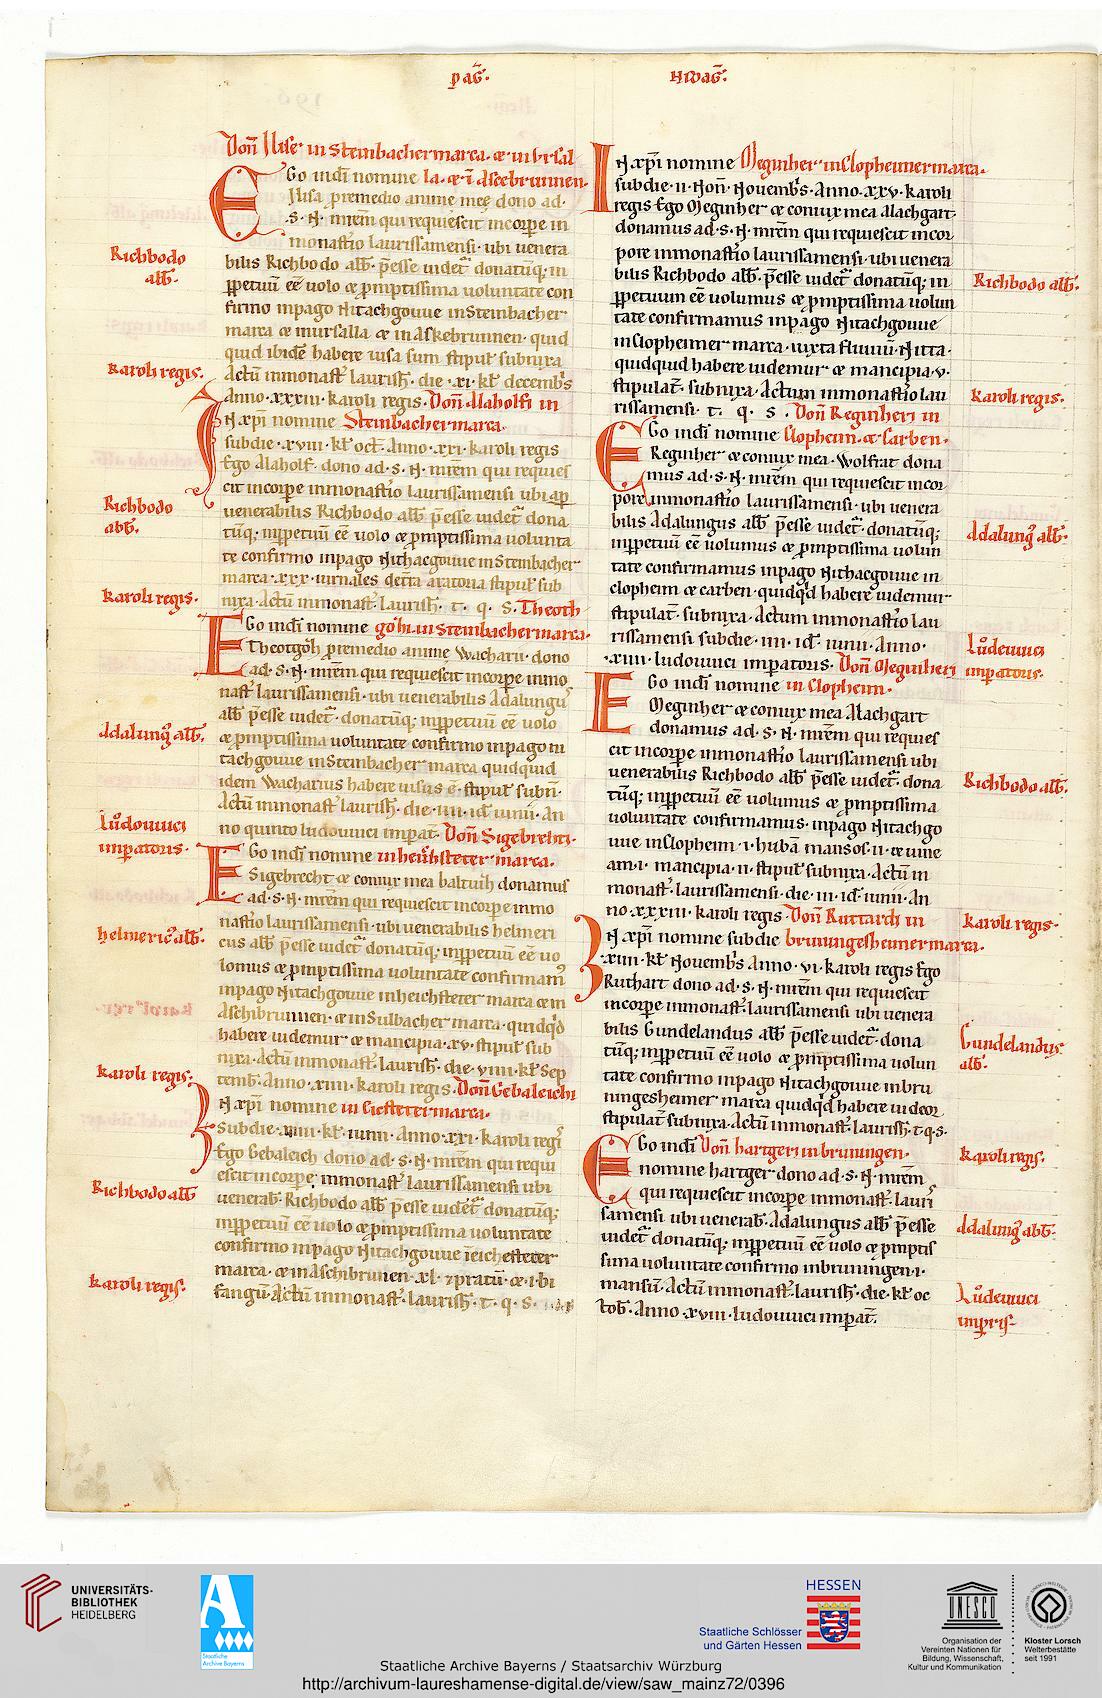 pag̅.
nıdag̅.
Don̅ Ilise in Steinbacher marca. et in Vrsal
Ego in dı̅ nomine la. et ı̅ Ascebrunnen.
Ilisa p remedio anime meę dono ad.
.S. N. mr̅em qui requiescit in corp̲e in
monast̅io laurissamensi. ubi venera
bilis Richbodo abb̅. p̅esse uidet̅. donatu̅q; in
p̲petuu̅ ee̅ uolo et p̲mptissima uoluntate con
firmo in pago Nitachgouue in Steinbacher
marca et in ursalla et in Askebrunnen. quid
quid ibide̅ habere uisa sum stipul̅ subnixa
Actu̅ in monast̅ laurish̅. die .xi. kl̅ decemb̅s
Anno .xxxiii. karoli regis. Don̅ Alaholfi in
IN xp̅i nomine Steinbacher marca.
sub die .xviii. kl̅ oct̅. Anno .xxi. karoli regis
Ego Alaholf. dono ad .S. N. mr̅em qui requies
cit in corp̲e in monast̅io laurissamensi ubi
venerabilis Richbodo abb̅ p̅esse uidet̅. dona
tu̅q; in p̲petuu̅ ee̅ uolo et p̲mptissima uolunta
te confirmo in pago Nithacgouue in Steinbacher
marca .xxx. iurnales de t̅ra aratoria stipul̅ sub
nixa. Actu̅ in monast̅. laurish̅. t. q. S. Theoth
Ego in dı̅ nomine go̅hi in Steinbacher marca.
Theotgoh̅ p remedio anime Wacharii. dono
ad .S. N. mr̅em qui requiescit in corp̲e in mo
nast̅ laurissamensi. ubi venerabilis Adalung᾽
abb̅ p̅esse uidet̅. donatu̅q; in p̲petuu̅ ee̅ uolo
et p̲mptissima uoluntate confirmo in pago ni
tachgouue in Steinbacher marca quidquid
idem Wacharius habere uisus e̅. stipul̅ subn̅.
Actu̅ in monast̅ laurish̅. die .iiii. id̅ iunii. An
no quinto ludouuici imp̲at̅. Don̅ Sigebrehti.
Ego in dı̅ nomine in heichsteter marca.
Sigebrecht et coniux mea baltuih donamus
ad .S. N. mr̅em qui requiescit in corp̲e in mo
nast̅io laurissamensi. ubi venerabilis helmeri
cus abb̅ p̅esse uidet̅ donatu̅q; in p̲petuu̅ ee̅ uo
lomus et p̲mptissima uoluntate confirmam᾽
in pago Nitachgouue in heichsteter marca et in
Aschibrunnen. et in Sulbacher marca. quidq̅d
habere uidemur et mancipia .xv. stipul̅ sub
nixa. Actu̅ in monast̅. laurish̅. die .viiii. kl̅ Sep
temb̅. Anno .xiiii. karoli regis. Don̅ Gebaleichi
IN xp̅i nomine in Eicsteter marca.
Sub die .xiiii. kl̅ iunii. Anno .xxi. karoli regi᾽
Ego Gebaleich dono ad .S. N. mr̅em qui requi
escit in corp̲e. in monast̅ laurissamensi ubi
venerab̅. Richbodo abb̅ p̅esse uidet̅ donatu̅q;
in p̲petuu̅ ee̅ uolo et p̲mptissima uoluntate
confirmo in pago Nitachgouue in eichesteter
marca. et in Aschibrunen .xl. 7 pratu̅ et .i. bi
fangu̅. Actu̅ in monast̅. laurish̅. t. q. S.
IN xp̅i nomine Meginher in Clopheimer marca.
sub die .ii. Non̅ Nouemb̅s. Anno .xxv. karoli
regis Ego Meginher et coniux mea Alachgart
donamus ad .S. N. mr̅em qui requiescit in cor
pore in monast̅io laurissamensi. ubi venera
bilis Richbodo abb̅. p̅esse uidet̅ donatu̅q; in
p̲petuum ee̅ uolumus et p̲mptissima volun
tate confirmamus in pago Nitachgouue
in Clopheimer marca. iuxta fluuiu̅ Nitta.
quidquid habere uidemur et mancipia .v.
stipulat̅. subnixa. Actum in monast̅io lau
rissamensi. t. q. S. Don̅ Reginheri in
Ego in dı̅ nomine Clopheim. et Carben.
Reginher et coniux mea. Wolfrat dona
mus ad .S. N. mr̅em qui requiescit in cor
pore in monast̅io laurissamensi. ubi venera
bilis Adalungus abb̅ p̅esse uidet̅. donatu̅q;
in p̲petuu̅ ee̅ uolumus et p̲mptissima uolun
tate confirmamus in pago Nithacgouue in
clopheim et carben. quidq̅d habere uidemur
stipulat̅. subnixa. Actum in monast̅io lau
rissamensi sub die .iiii. id̅ iunii. Anno.
.xiii. ludouuici imp̲atoris. Don̅ Meginheri
Ego in dı̅ nomine in Clopheim.
Meginher et coniux mea Alachgart
donamus ad .S. N. mr̅em qui requies
cit in corp̲e in monast̅io laurissamensi ubi
venerabilis Richbodo abb̅ p̅esse uidet̅. dona
tu̅q; in p̲petuu̅ ee̅ uolumus et p̲mptissima
uoluntate confirmamus. in pago Nitachgo
uue in Clopheim .i. huba̅ mansos .ii. et uine
am .i. mancipia .ii. stipul̅ subnixa. Actu̅ in
monast̅. laurissamensi. die .iii. id̅ iunii. An
no .xxxiii. karoli regis Don̅ Ruttardi in
IN xp̅i nomine sub die bruningesheimer marca.
.xiiii. kl̅ Nouemb̅s Anno .vi. karoli regis Ego
Ruthart dono ad .S. N. mr̅em qui requiescit
in corp̲e in monast̅. laurissamensi ubi venera
bilis Gundelandus abb̅ p̅esse uidet̅. dona
tu̅q; in p̲petuu̅ ee̅ uolo et p̲mptissima uolun
tate confirmo in pago Nitachgouue in bru
ningesheimer marca quidq̅d habere uideor
stipulat̅ subnixa. Actu̅ in monast̅. laurish̅. t. q. S.
Ego in dı̅ Don̅ hartgeri in bruningen.
nomine hartger dono ad .S. N. mr̅em
qui requiescit in corp̲e in monast̅. lauri
samensi ubi venerab̅. Adalungus abb̅ p̅esse
uidet̅ donatu̅q; in p̲petuu̅ ee̅ uolo et p̲mptis
sima uoluntate confirmo in bruningen .i.
mansu̅. Actu̅ in monast̅. laurish̅. die. kl̅ oc
tob̅. Anno .xviii. ludouuici imp̲at̅.
Richbodo
abb̅.
karoli regis.
Richbodo
abb̅.
karoli regis.
Adalung᾽ abb̅.
Ludouuici
imp̲atoris.
helmeric᾽ abb̅.
karoli regis.
Richbodo abb̅
karoli regis.
Richbodo abb̅.
karoli regis.
Adalung᾽ abb̅.
Ludeuuici
imp̲atoris.
Richbodo abb̅.
karoli regis.
Gundelandus
abb̅.
karoli regis.
Adalung᾽ abb̅.
Ludeuuici
imp̲ris.
UNIVERSITÄTS-
BIBLIOTHEK
HEIDELBERG
A
Staatliche
Archive Bayerns
HESSEN
Staatliche Schlösser
und Gärten Hessen
UNESCO
Organisation der
Vereinten Nationen für
Bildung, Wissenschaft,
Kultur und Kommunikation
Kloster Lorsch
Welterbestätte
seit 1991
Staatliche Archive Bayerns / Staatsarchiv Würzburg
http://archivum-laureshamense-digital.de/view/saw_mainz72/0396